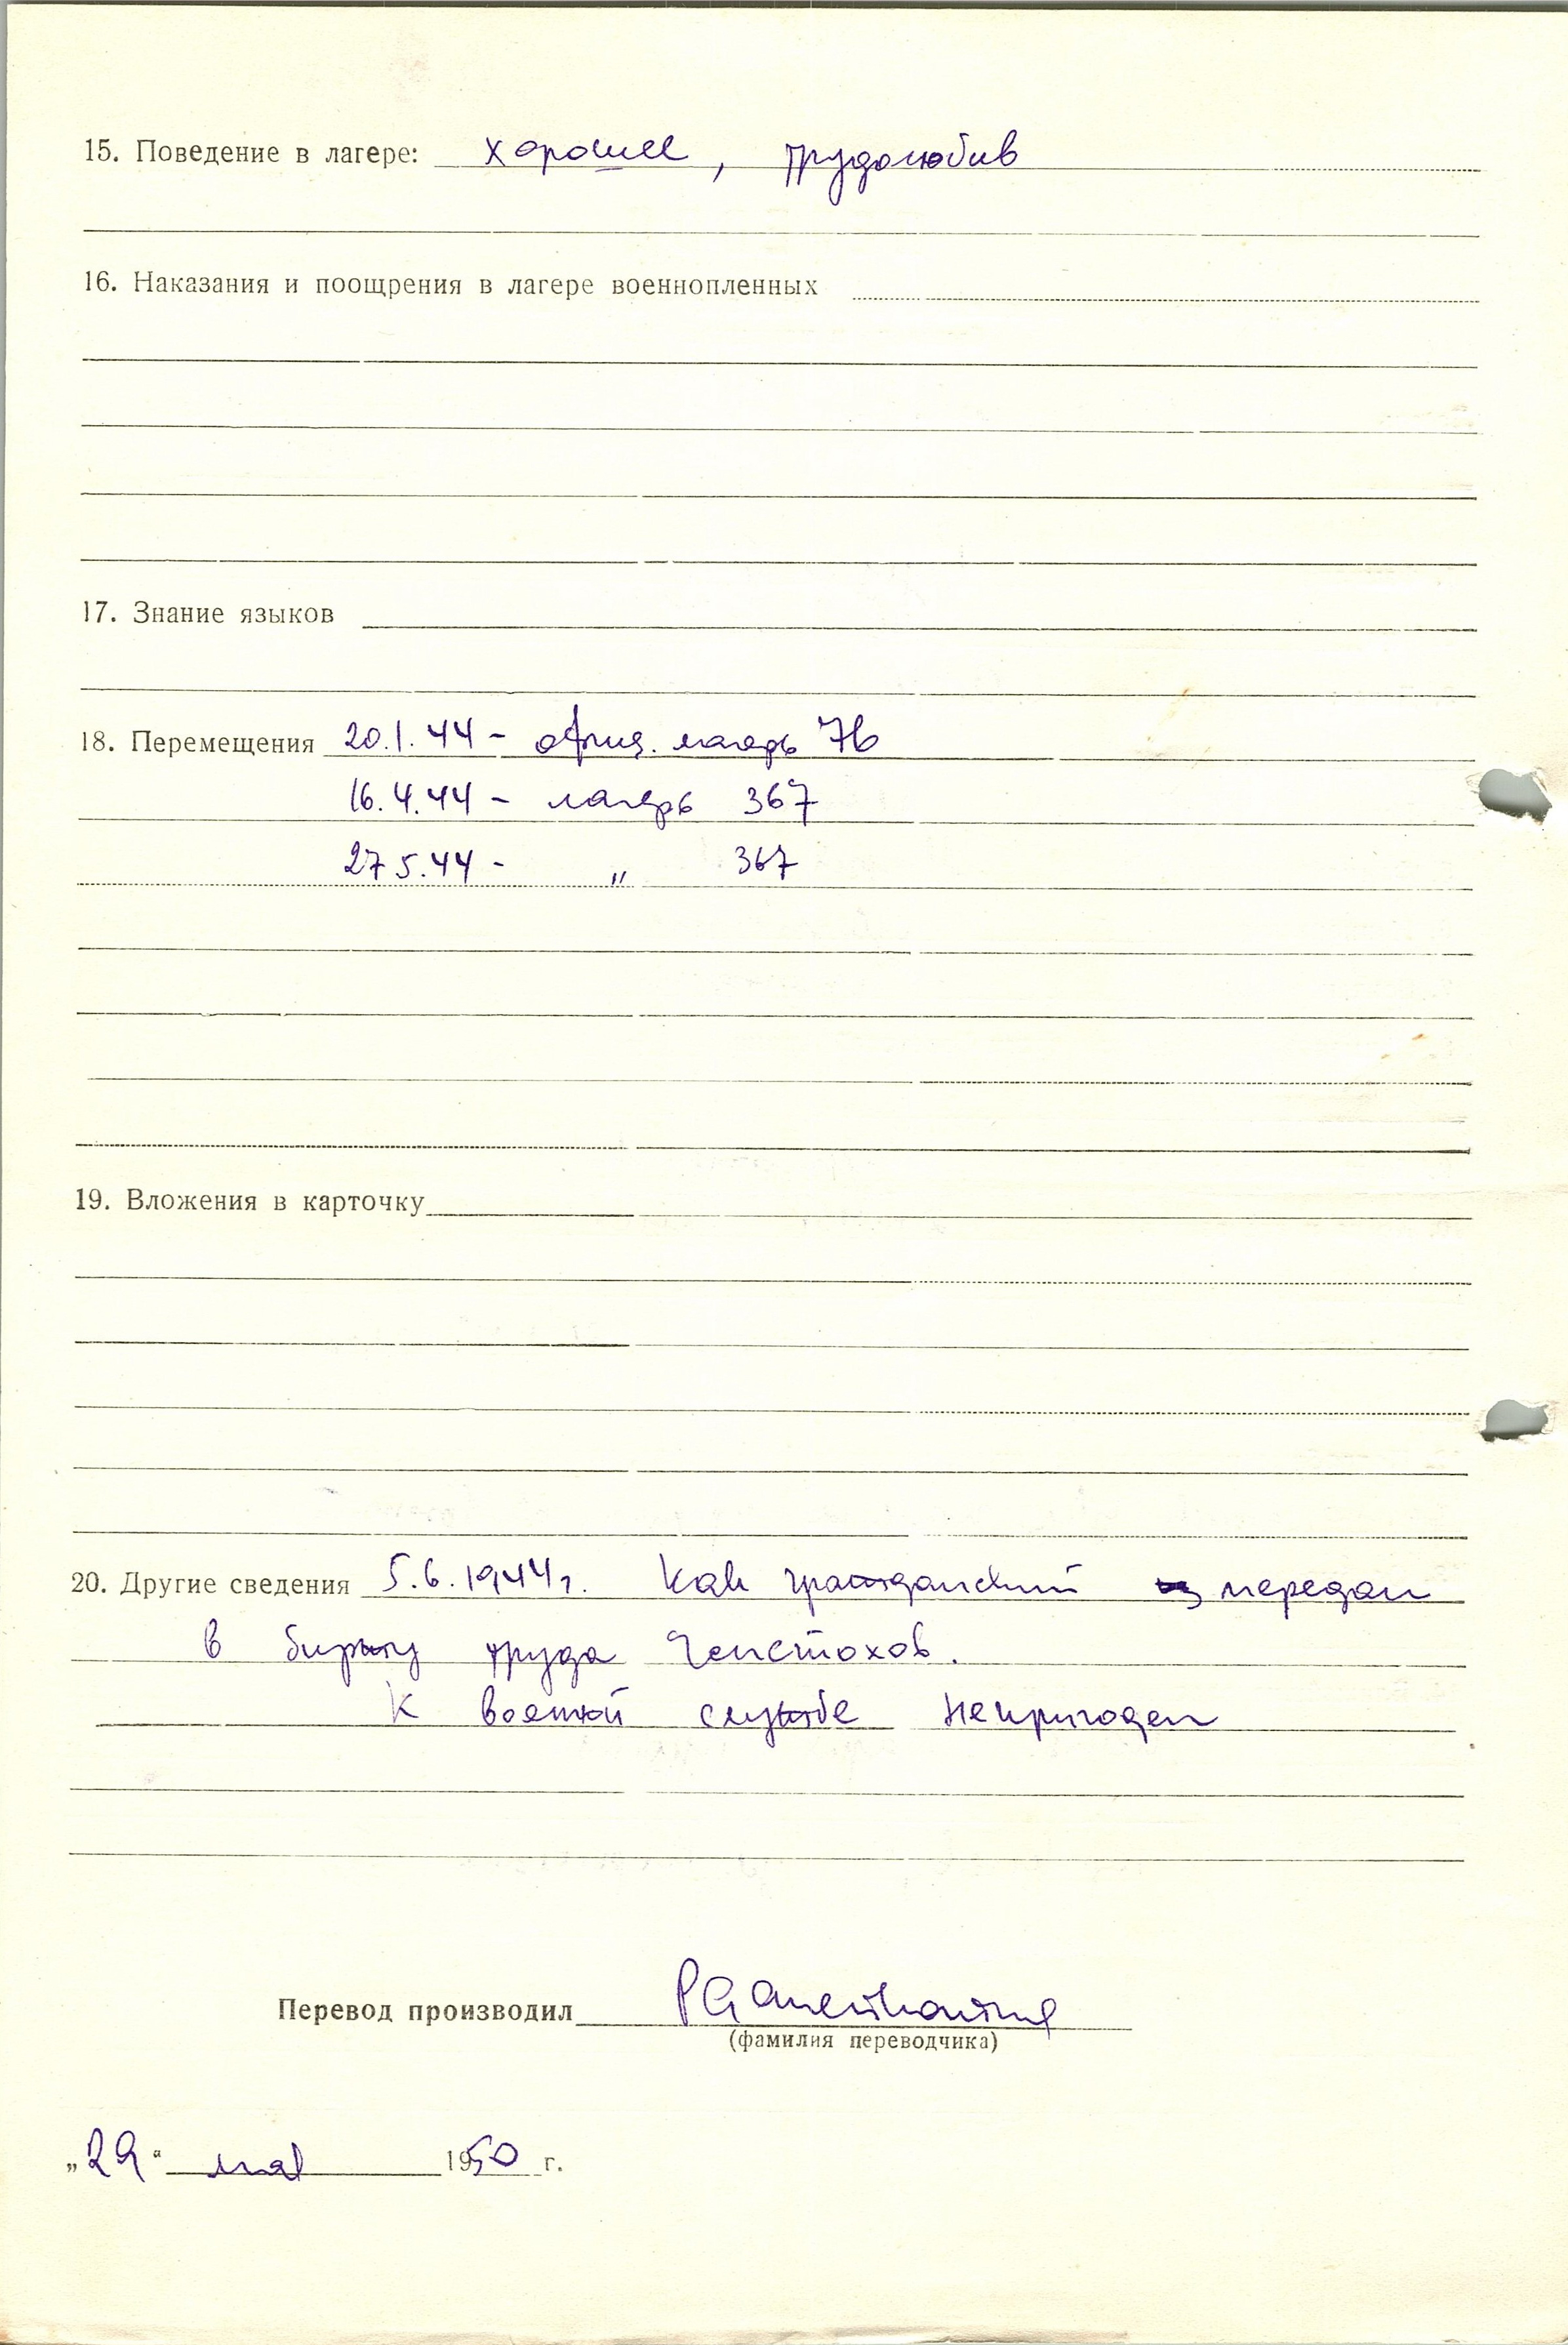 15. Поведение в лагере: хорошее, трудолюбив
16. Наказания и поощрения в лагере военнопленных
17. Знание языков
18. Перемещения 20.1.44 - офиц. лагерь 7б
16.4.44 - лагерь 367
27 5.44 - " 367
19. Вложения в карточку
20. Другие сведения 5.6.1944г. Как гражданский передан
в биржу труда Ченстохов.
К военной службе непригоден
Перевод производил
(фамилия переводчика)
„29“ мая 1950 г.